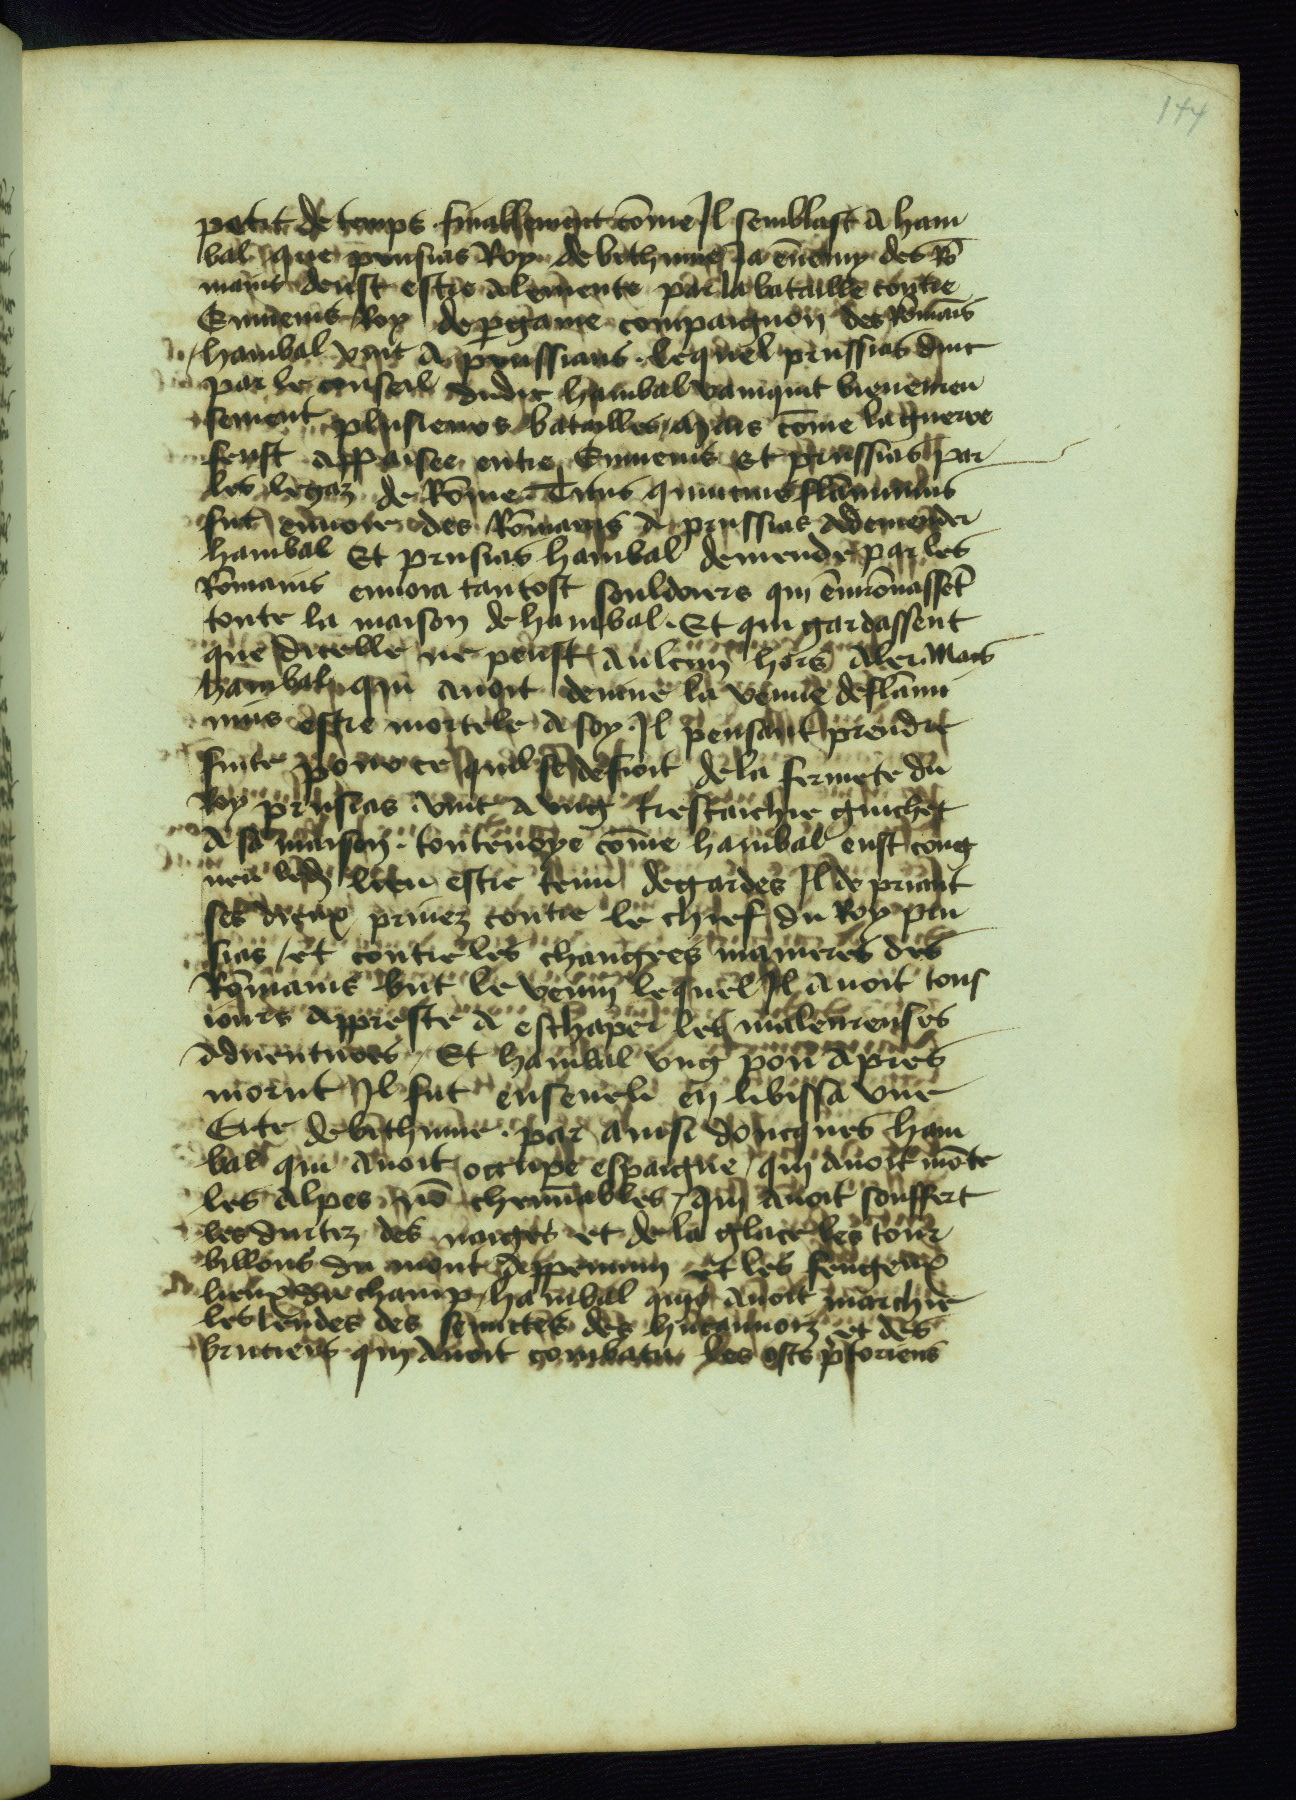 144
petit de temps. finablement cōme Il semblast a ham
bal que prusias Roy de bithinie Ja ēnemy des Rō
mains deust estre alemente par la bataille contre
Eumenis Roy de pgame compaignon des Rōmais
hanibal vint a prussians. lequel prussias dūc
par le conseil dudit hanibal vainquit bieneureu
sement plusieurs batailles, mais cōme la guerre
feust appaisee entre Eumenis Et prussias par
les legaz de Rōme. Titus quincius flāminius
fut ēnvoie des Rōmains a prussias a demender
hanibal Et prusias hanibal demende par les
Rōmains envoia tantost souldoiers qui ēnvirōnassēt
toute la maison de hanibal. Et qui gardassent
que dicelle ne peust aulcun hors aler. Mais
hanibal qui avoit devine la venue de flāmi
nius estre mortele a soy. Il pensant prendre
fuite pour ce quil se defioit de la fermete du
Roy prusias vint a vng trestaichie guichet
a sa maison. toutevoye cōme hanibal eust cong
neu lieu estre tenu de gardes Il de priant
ses dieux privez contre le chief du Roy pru
sias, et contre les changees manieres des
Rōmains but le venin lequel Il avoit tous
iours appreste a eschaper les maleureuses
adventures, Et hanibal vng pou apres
morut Il fut enseveli en libissa vne
Cite de bithinie. par ainsi doncques ham
bal qui avoit occupe espaigne, qui avoit mōte
les alpes nō cheminables, qui avoit souffert
les durtez des naiges et de la glace les tour
billons du mont appennin et les fengeux
lieux du champ, hanibal qui avoit marchie
les lendes des samictes des lucanoiz et des
brutiens qui avoit combatu les osts pretoriens